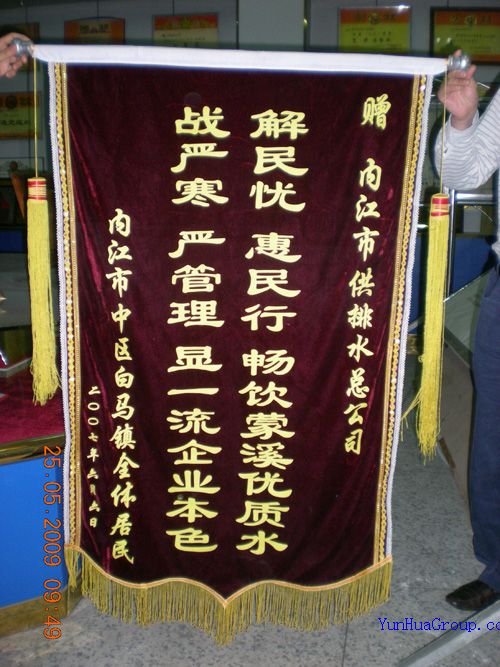 赠 内江市供排水总公司
解民忧 惠民行 畅饮蒙溪优质水
战严寒 严管理 显一流企业本色
内江市中区白马镇全体居民
二〇〇七年六月六日
25.05.2009 09:49
YunHuaGroup.co